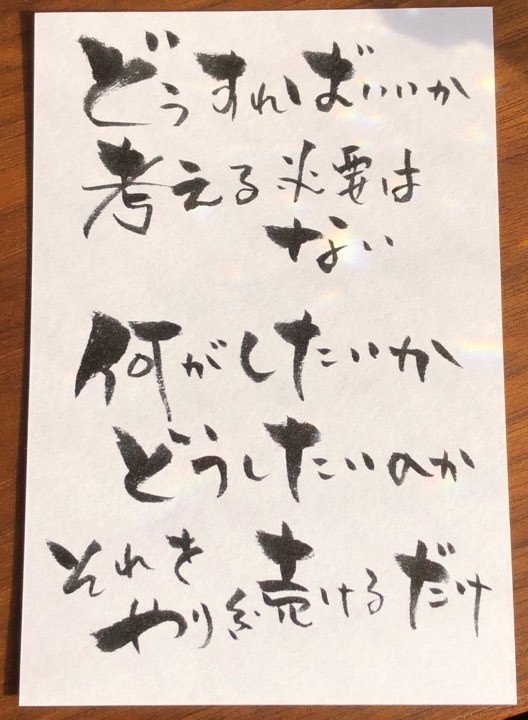 どうすればいいか
考える必要は
ない
何がしたいか
どうしたいのか
それを
やり続けるだけ